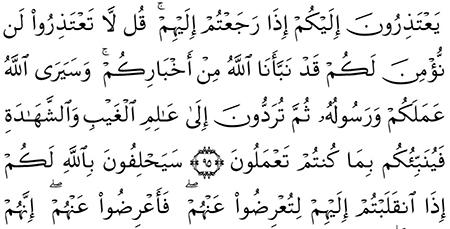 يَعْتَذِرُونَ إِلَيْكُمْ إِذَا رَجَعْتُمْ إِلَيْهِمْ ۚ قُل لَّا تَعْتَذِرُوا۟ لَن
نُّؤْمِنَ لَكُمْ قَدْ نَبَّأَنَا ٱللَّهُ مِنْ أَخْبَارِكُمْ ۚ وَسَيَرَى ٱللَّهُ
عَمَلَكُمْ وَرَسُولُهُۥ ثُمَّ تُرَدُّونَ إِلَىٰ عَـٰلِمِ ٱلْغَيْبِ وَٱلشَّهَـٰدَةِ
فَيُنَبِّئُكُم بِمَا كُنتُمْ تَعْمَلُونَ ٩٥ سَيَحْلِفُونَ بِٱللَّهِ لَكُمْ
إِذَا ٱنقَلَبْتُمْ إِلَيْهِمْ لِتُعْرِضُوا۟ عَنْهُمْ ۖ فَأَعْرِضُوا۟ عَنْهُمْ ۖ إِنَّهُمْ